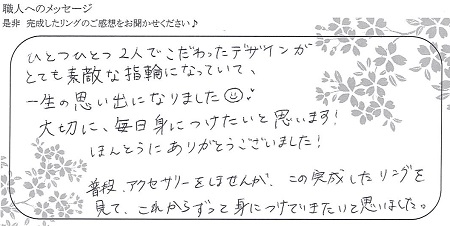 職人へのメッセージ
是非 完成したリングのご感想をお聞かせください♪
ひとつひとつ2人でこだわったデザインが
とても素敵な指輪になっていて、
一生の思い出になりました☺♪
大切に、毎日身につけたいと思います!
ほんとうにありがとうございました!
普段、アクセサリーをしませんが、この完成したリングを
見て、これからずっと身につけていきたいと思いました。